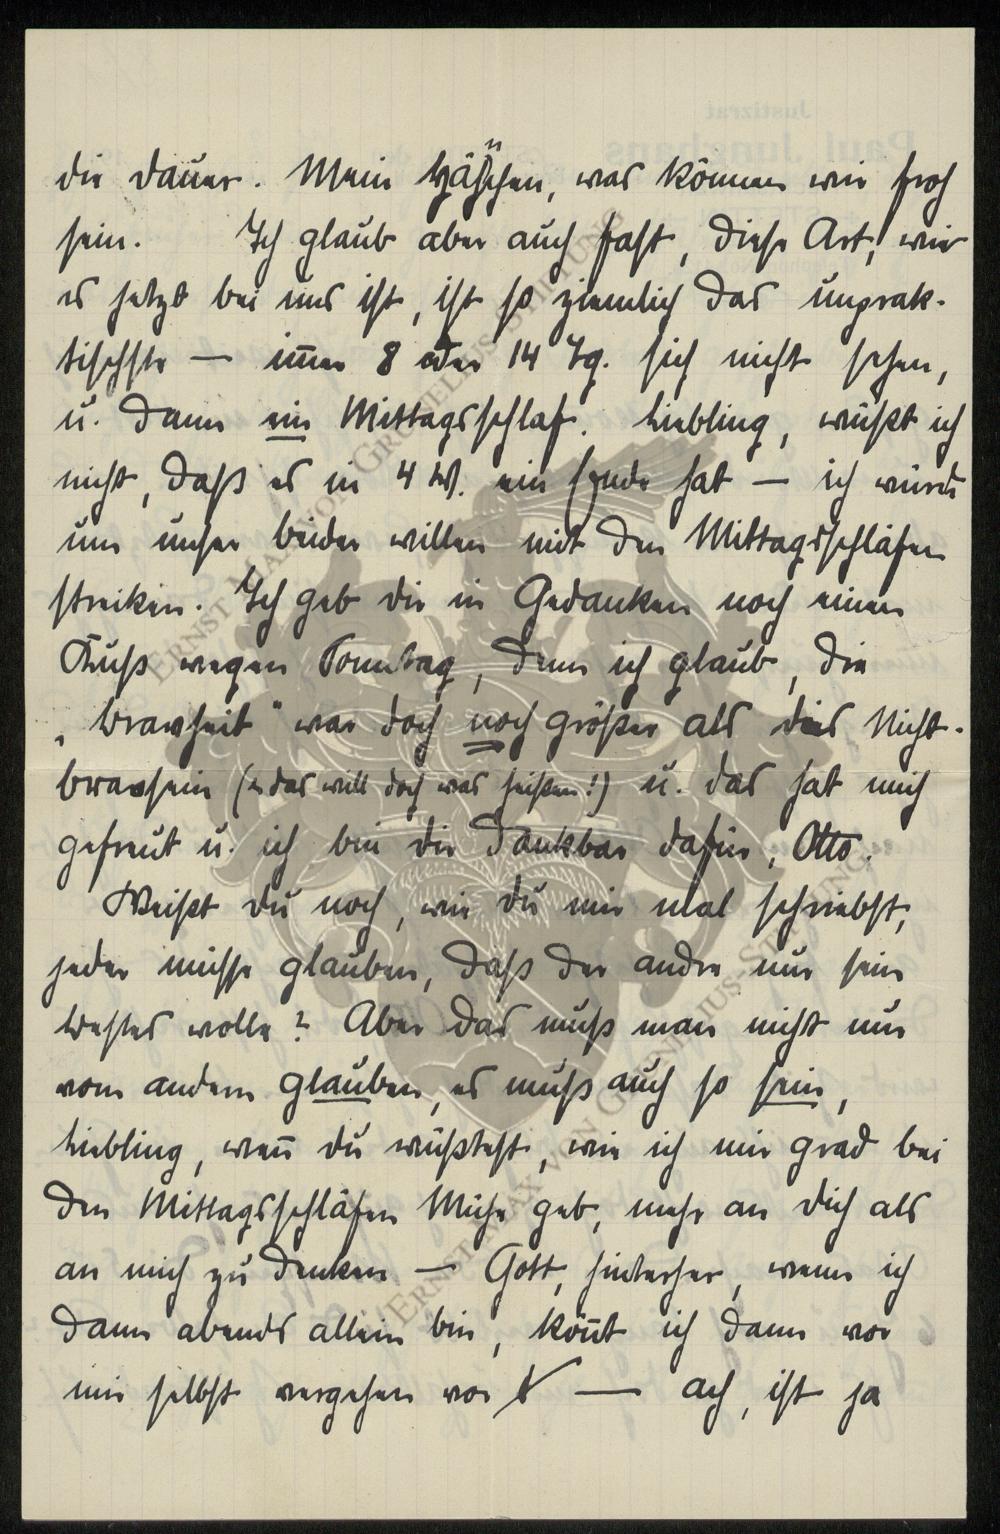 die Dauer. Mein Häschen, was können wir froh
sein. Ich glaub aber auch fast, diese Art, wie
es jetzt bei uns ist, ist so ziemlich das unprak-
tischste — im̅er 8 oder 14 Tg. sich nicht sehen,
u. dann ein Mittagsschlaf. Liebling, wüßt ich
nicht, daß es in 4 W. ein Ende hat — ich würde
um unser beider willen mit den Mittagsschläfen
streiken. Ich geb dir in Gedanken noch einen
Kuß wegen Sonntag, denn ich glaub, die
„Bravheit" war doch noch größer als das Nicht-
bravsein (u das will doch was heißen!) u. das hat mich
gefreut u. ich bin dir dankbar dafür, Otto.
Weißt du noch, wie du mir mal schriebst,
jeder müsse glauben, daß der andre nur sein
Bestes wolle? Aber das muß man nicht nur
vom andern glauben, es muß auch so sein,
Liebling, wen̅ du wüßtest, wie ich mir grad bei
den Mittagsschläfen Mühe geb, mehr an dich als
an mich zu denken — Gott, hinterher, wenn ich
dann abends allein bin, kön̅t ich dann vor
mir selbst vergehen vor — ach, ist ja
Justizrat
Paul Junghans
ERNST MAX VON GRUNELIUS-STIFTUNG
ERNST MAX VON GRUNELIUS-STIFTUNG